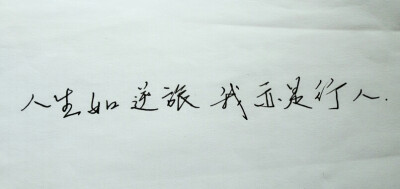 人生如逆旅 我亦是行人.